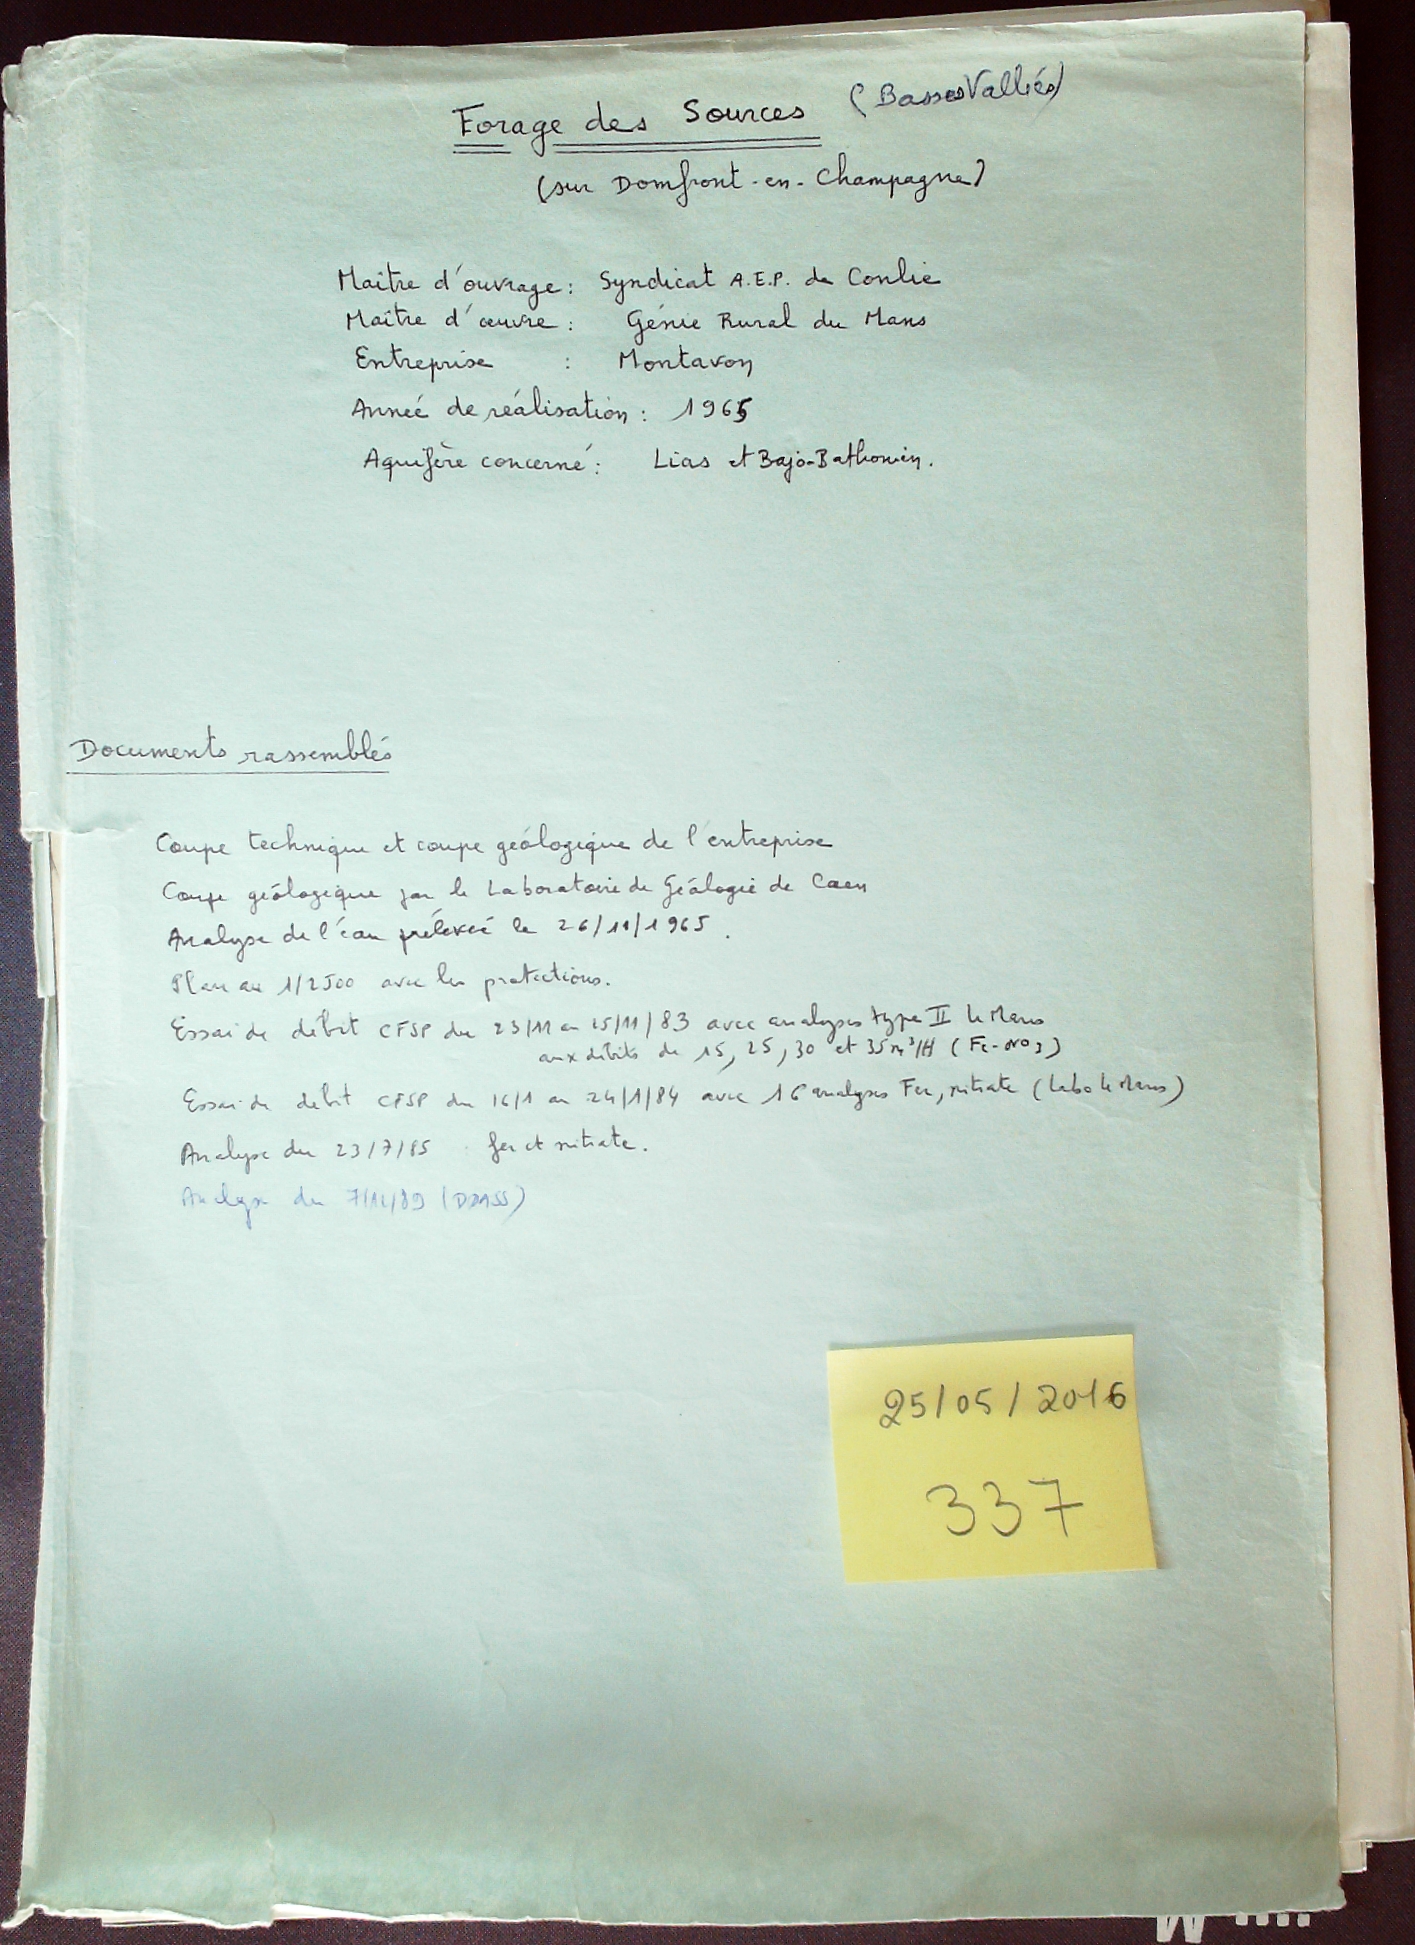 Forage des Sources (Basses Vallées)
(sur Domfront-en-Champagne)
Maître d'ouvrage : Syndicat A.E.P. de Conlie
Maître d'œuvre : Génie Rural du Mans
Entreprise : Montavon
Année de réalisation : 1965
Aquifère concerné : Lias et Bajo-Bathonien.
Documents rassemblés
Coupe technique et coupe géologique de l'entreprise
Coupe géologique par le Laboratoire de Géologie de Caen
Analyse de l'eau prélevée le 26/11/1965.
Plan au 1/2500 avec les protections.
Essai de débit CFSP du 23/11 au 25/11/83 avec analyses type II le Mans
aux débits de 15, 25, 30 et 35 m³/H (Fe-NO3)
Essai de débit CFSP du 16/1 au 24/1/84 avec 16 analyses Fer, nitrate (Labo le Mans)
Analyse du 23/7/85 fer et nitrate.
Analyse du (DDASS)
25/05/2016
337